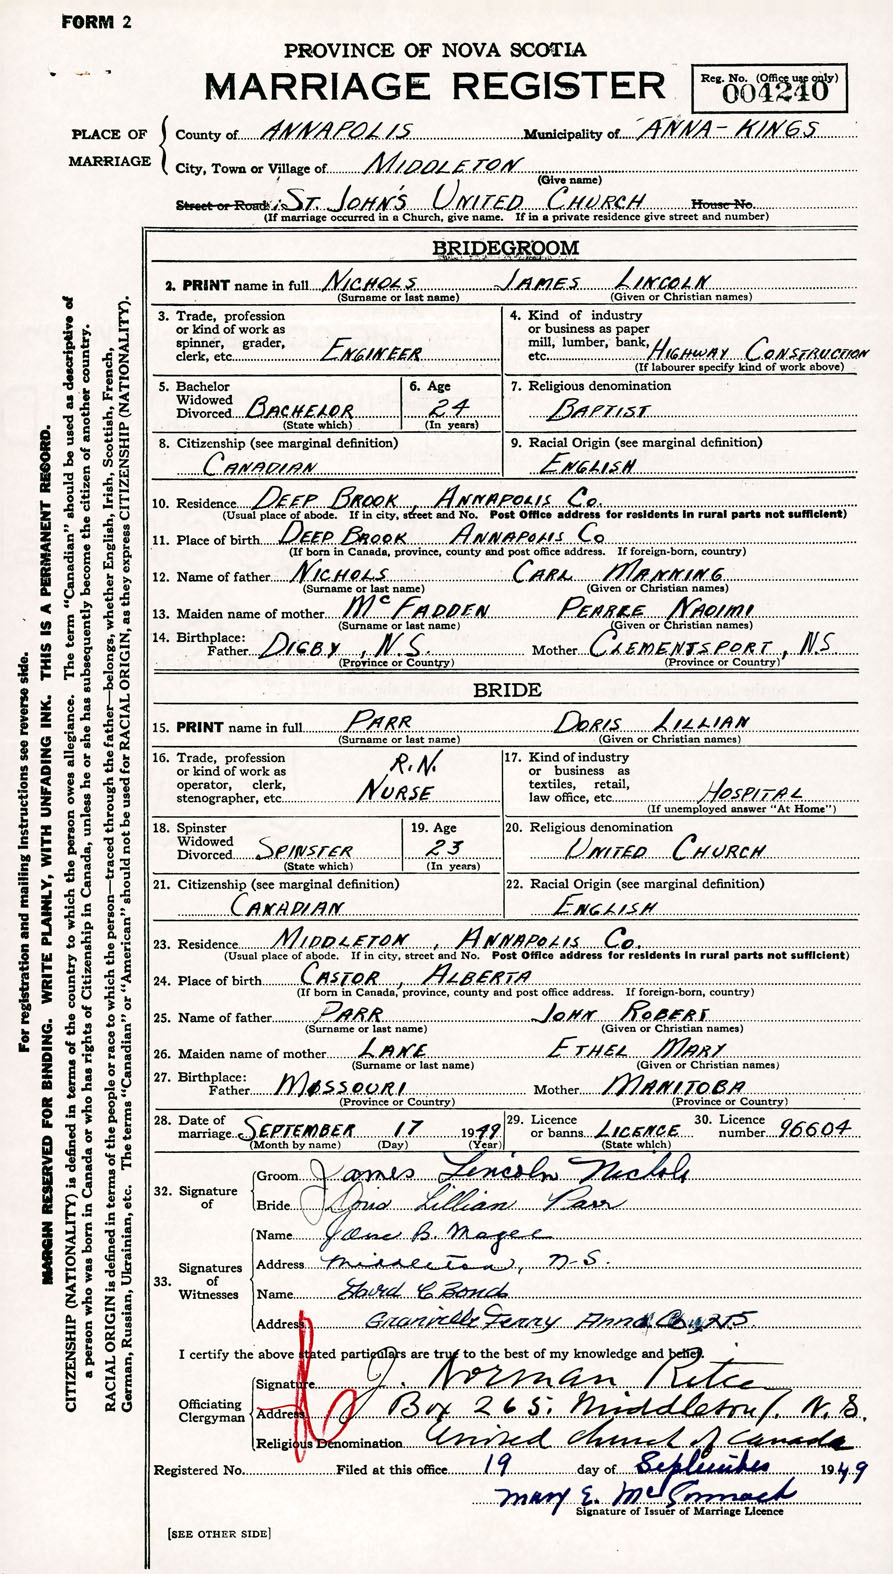 FORM 2
PROVINCE OF NOVA SCOTIA
MARRIAGE REGISTER
Reg. No. (Office use only)
004240
PLACE OF MARRIAGE
County of ANNAPOLIS Municipality of ANNA-KINGS
City, Town or Village of MIDDLETON
(Give name)
Street or Road ST. JOHN'S UNITED CHURCH House No.
(If marriage occurred in a Church, give name. If in a private residence give street and number)
BRIDEGROOM
2. PRINT name in full NICHOLS JAMES LINCOLN
(Surname or last name) (Given or Christian names)
3. Trade, profession or kind of work as spinner, grader, clerk, etc. ENGINEER
4. Kind of industry or business as paper mill, lumber, bank, etc. HIGHWAY CONSTRUCTION
(If labourer specify kind of work above)
5. Bachelor Widowed Divorced BACHELOR
(State which)
6. Age 24
(In years)
7. Religious denomination BAPTIST
8. Citizenship (see marginal definition) CANADIAN
9. Racial Origin (see marginal definition) ENGLISH
10. Residence DEEP BROOK, ANNAPOLIS CO.
(Usual place of abode. If in city, street and No. Post Office address for residents in rural parts not sufficient)
11. Place of birth DEEP BROOK ANNAPOLIS CO
(If born in Canada, province, county and post office address. If foreign-born, country)
12. Name of father NICHOLS CARL MANNING
(Surname or last name) (Given or Christian names)
13. Maiden name of mother McFADDEN PEARLE NAOIMI
(Surname or last name) (Given or Christian names)
14. Birthplace: Father DIGBY, N.S. Mother CLEMENTSPORT, N.S
(Province or Country) (Province or Country)
BRIDE
15. PRINT name in full PARR DORIS LILLIAN
(Surname or last name) (Given or Christian names)
16. Trade, profession or kind of work as operator, clerk, stenographer, etc. R.N. NURSE
17. Kind of industry or business as textiles, retail, law office, etc. HOSPITAL
(If unemployed answer "At Home")
18. Spinster Widowed Divorced SPINSTER
(State which)
19. Age 23
(In years)
20. Religious denomination UNITED CHURCH
21. Citizenship (see marginal definition) CANADIAN
22. Racial Origin (see marginal definition) ENGLISH
23. Residence MIDDLETON, ANNAPOLIS CO.
(Usual place of abode. If in city, street and No. Post Office address for residents in rural parts not sufficient)
24. Place of birth CASTOR, ALBERTA
(If born in Canada, province, county and post office address. If foreign-born, country)
25. Name of father PARR JOHN ROBERT
(Surname or last name) (Given or Christian names)
26. Maiden name of mother LANE ETHEL MARY
(Surname or last name) (Given or Christian names)
27. Birthplace: Father MISSOURI Mother MANITOBA
(Province or Country) (Province or Country)
28. Date of marriage SEPTEMBER 17 1949
(Month by name) (Day) (Year)
29. Licence or banns LICENCE
(State which)
30. Licence number 96604
32. Signature of
Groom James Lincoln Nichols
Bride Doris Lillian Parr
33. Signatures of Witnesses
Name B. Magee
Address Middleton, N-S.
Name David C Bond
Address Granville Ferry Anna
I certify the above stated particulars are true to the best of my knowledge and belief.
Officiating Clergyman
Signature J. Norman
Address Box 265, Middleton, N.S.
Religious Denomination United Church of Canada
Registered No. Filed at this office 19 day of September 1949
Mary E. McCormack
Signature of Issuer of Marriage Licence
[SEE OTHER SIDE]
For registration and mailing instructions see reverse side.
MARGIN RESERVED FOR BINDING. WRITE PLAINLY, WITH UNFADING INK. THIS IS A PERMANENT RECORD.
CITIZENSHIP (NATIONALITY) is defined in terms of the country to which the person owes allegiance. The term "Canadian" should be used as descriptive of
a person who was born in Canada or who has rights of Citizenship in Canada, unless he or she has subsequently become the citizen of another country.
RACIAL ORIGIN is defined in terms of the people or race to which the person—traced through the father—belongs, whether English, Irish, Scottish, French,
German, Russian, Ukrainian, etc. The terms "Canadian" or "American" should not be used for RACIAL ORIGIN, as they express CITIZENSHIP (NATIONALITY).